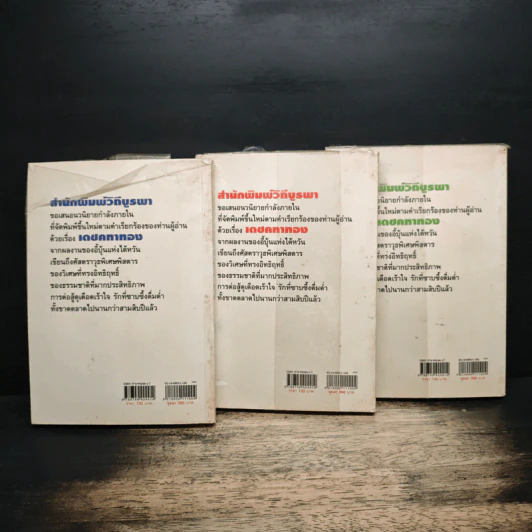 สำนักพิมพ์วิถีบูรพา
ขอเสนอนวนิยายกำลังภายใน
ที่จัดพิมพ์ขึ้นใหม่ตามคำเรียกร้องของท่านผู้อ่าน
ด้วยเรื่อง เดชคทาทอง
จากผลงานของอี้บุ้นแห่งไต้หวัน
เขียนถึงศัสตราวุธพิเศษพิสดาร
ของวิเศษที่ทรงอิทธิฤทธิ์
ของธรรมชาติที่มากประสิทธิภาพ
การต่อสู้ดุเดือดเร้าใจ รักที่ซาบซึ้งดื่มด่ำ
ทั้งขาดตลาดไปนานกว่าสามสิบปีแล้ว
สำนักพิมพ์วิถีบูรพา
ขอเสนอนวนิยายกำลังภายใน
ที่จัดพิมพ์ขึ้นใหม่ตามคำเรียกร้องของท่านผู้อ่าน
ด้วยเรื่อง เดชคทาทอง
จากผลงานของอี้บุ้นแห่งไต้หวัน
เขียนถึงศัสตราวุธพิเศษพิสดาร
ของวิเศษที่ทรงอิทธิฤทธิ์
ของธรรมชาติที่มากประสิทธิภาพ
การต่อสู้ดุเดือดเร้าใจ รักที่ซาบซึ้งดื่มด่ำ
ทั้งขาดตลาดไปนานกว่าสามสิบปีแล้ว
พิมพ์วิถีบูรพา
วนิยายกำลังภายใน
ขึ้นใหม่ตามคำเรียกร้องของท่านผู้อ่าน
เดชคทาทอง
านของอี้บุ้นแห่งไต้หวัน
ตราวุธพิเศษพิสดาร
ที่ทรงอิทธิฤทธิ์
ชาติที่มากประสิทธิภาพ
ดุเดือดเร้าใจ รักที่ซาบซึ้งดื่มด่ำ
ลาดไปนานกว่าสามสิบปีแล้ว